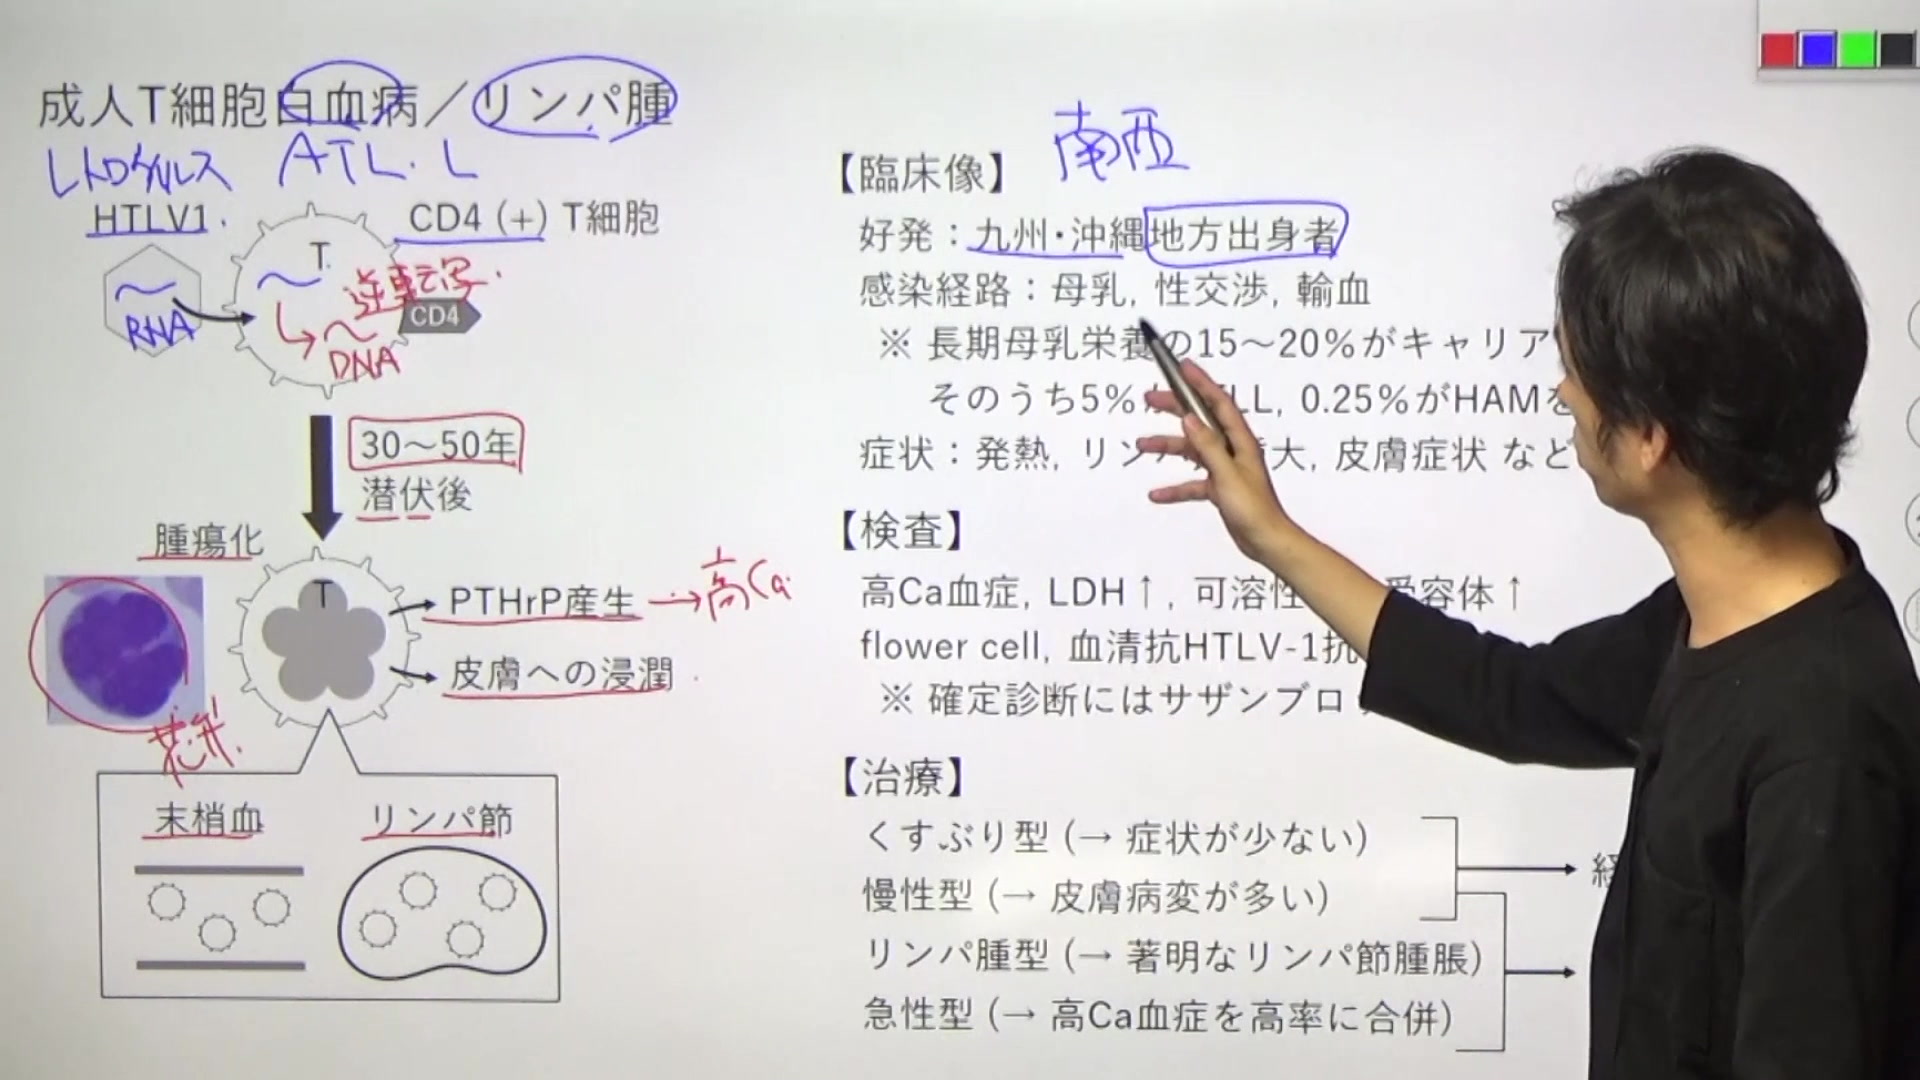 成人T細胞白血病／リンパ腫
レトロウイルス ATL・L
HTLV1
CD4 (+) T細胞
T
逆転写
CD4
RNA
DNA
30〜50年
潜伏後
腫瘍化
T
PTHrP産生 → 高Ca
皮膚への浸潤
花弁
末梢血 リンパ節
南西
【臨床像】
好発：九州・沖縄地方出身者
感染経路：母乳, 性交渉, 輸血
※ 長期母乳栄養の15〜20%がキャリア
そのうち5% LL, 0.25%がHAMを
症状：発熱, リン 大, 皮膚症状 など
【検査】
高Ca血症, LDH↑, 可溶性 受容体↑
flower cell, 血清抗HTLV-1抗
※ 確定診断にはサザンブロ
【治療】
くすぶり型 (→ 症状が少ない)
慢性型 (→ 皮膚病変が多い)
リンパ腫型 (→ 著明なリンパ節腫脹)
急性型 (→ 高Ca血症を高率に合併)
経